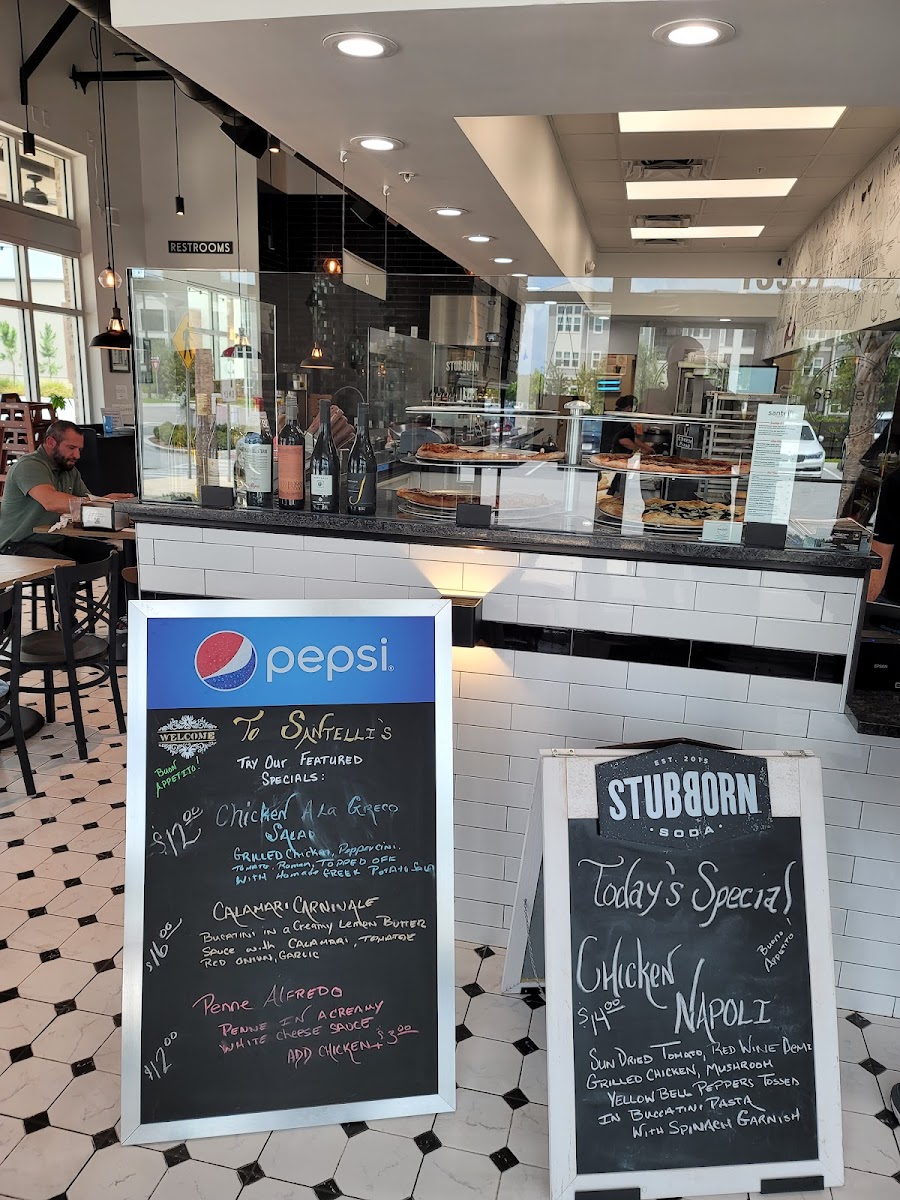 RESTROOMS
STUBBORN
pepsi
WELCOME To SANTELLI'S
BUON APPETITO!
TRY OUR FEATURED
SPECIALS:
$12.00
CHICKEN A LA GRECO
SALAD
GRILLED CHICKEN, PEPPERCINI,
TOMATO, ROMAN, TOPPED OFF
WITH HOMADE GREEK POTATO SALAD
$16.00
CALAMARI CARNIVALE
BUCATINI IN A CREAMY LEMON BUTTER
SAUCE WITH CALAMARI, TOMATOE
RED ONION, GARLIC
$12.00
PENNE ALFREDO
PENNE IN A CREAMY
WHITE CHEESE SAUCE
ADD CHICKEN + $3.00
EST. 2015
STUBBORN
SODA
Today's Special
BUONO
APPETITO!
CHICKEN
$14.00
NAPOLI
SUN DRIED TOMATO, RED WINE DEMI
GRILLED CHICKEN, MUSHROOM
YELLOW BELL PEPPERS TOSSED
IN BUCCATINI PASTA
WITH SPINACH GARNISH
EPSON